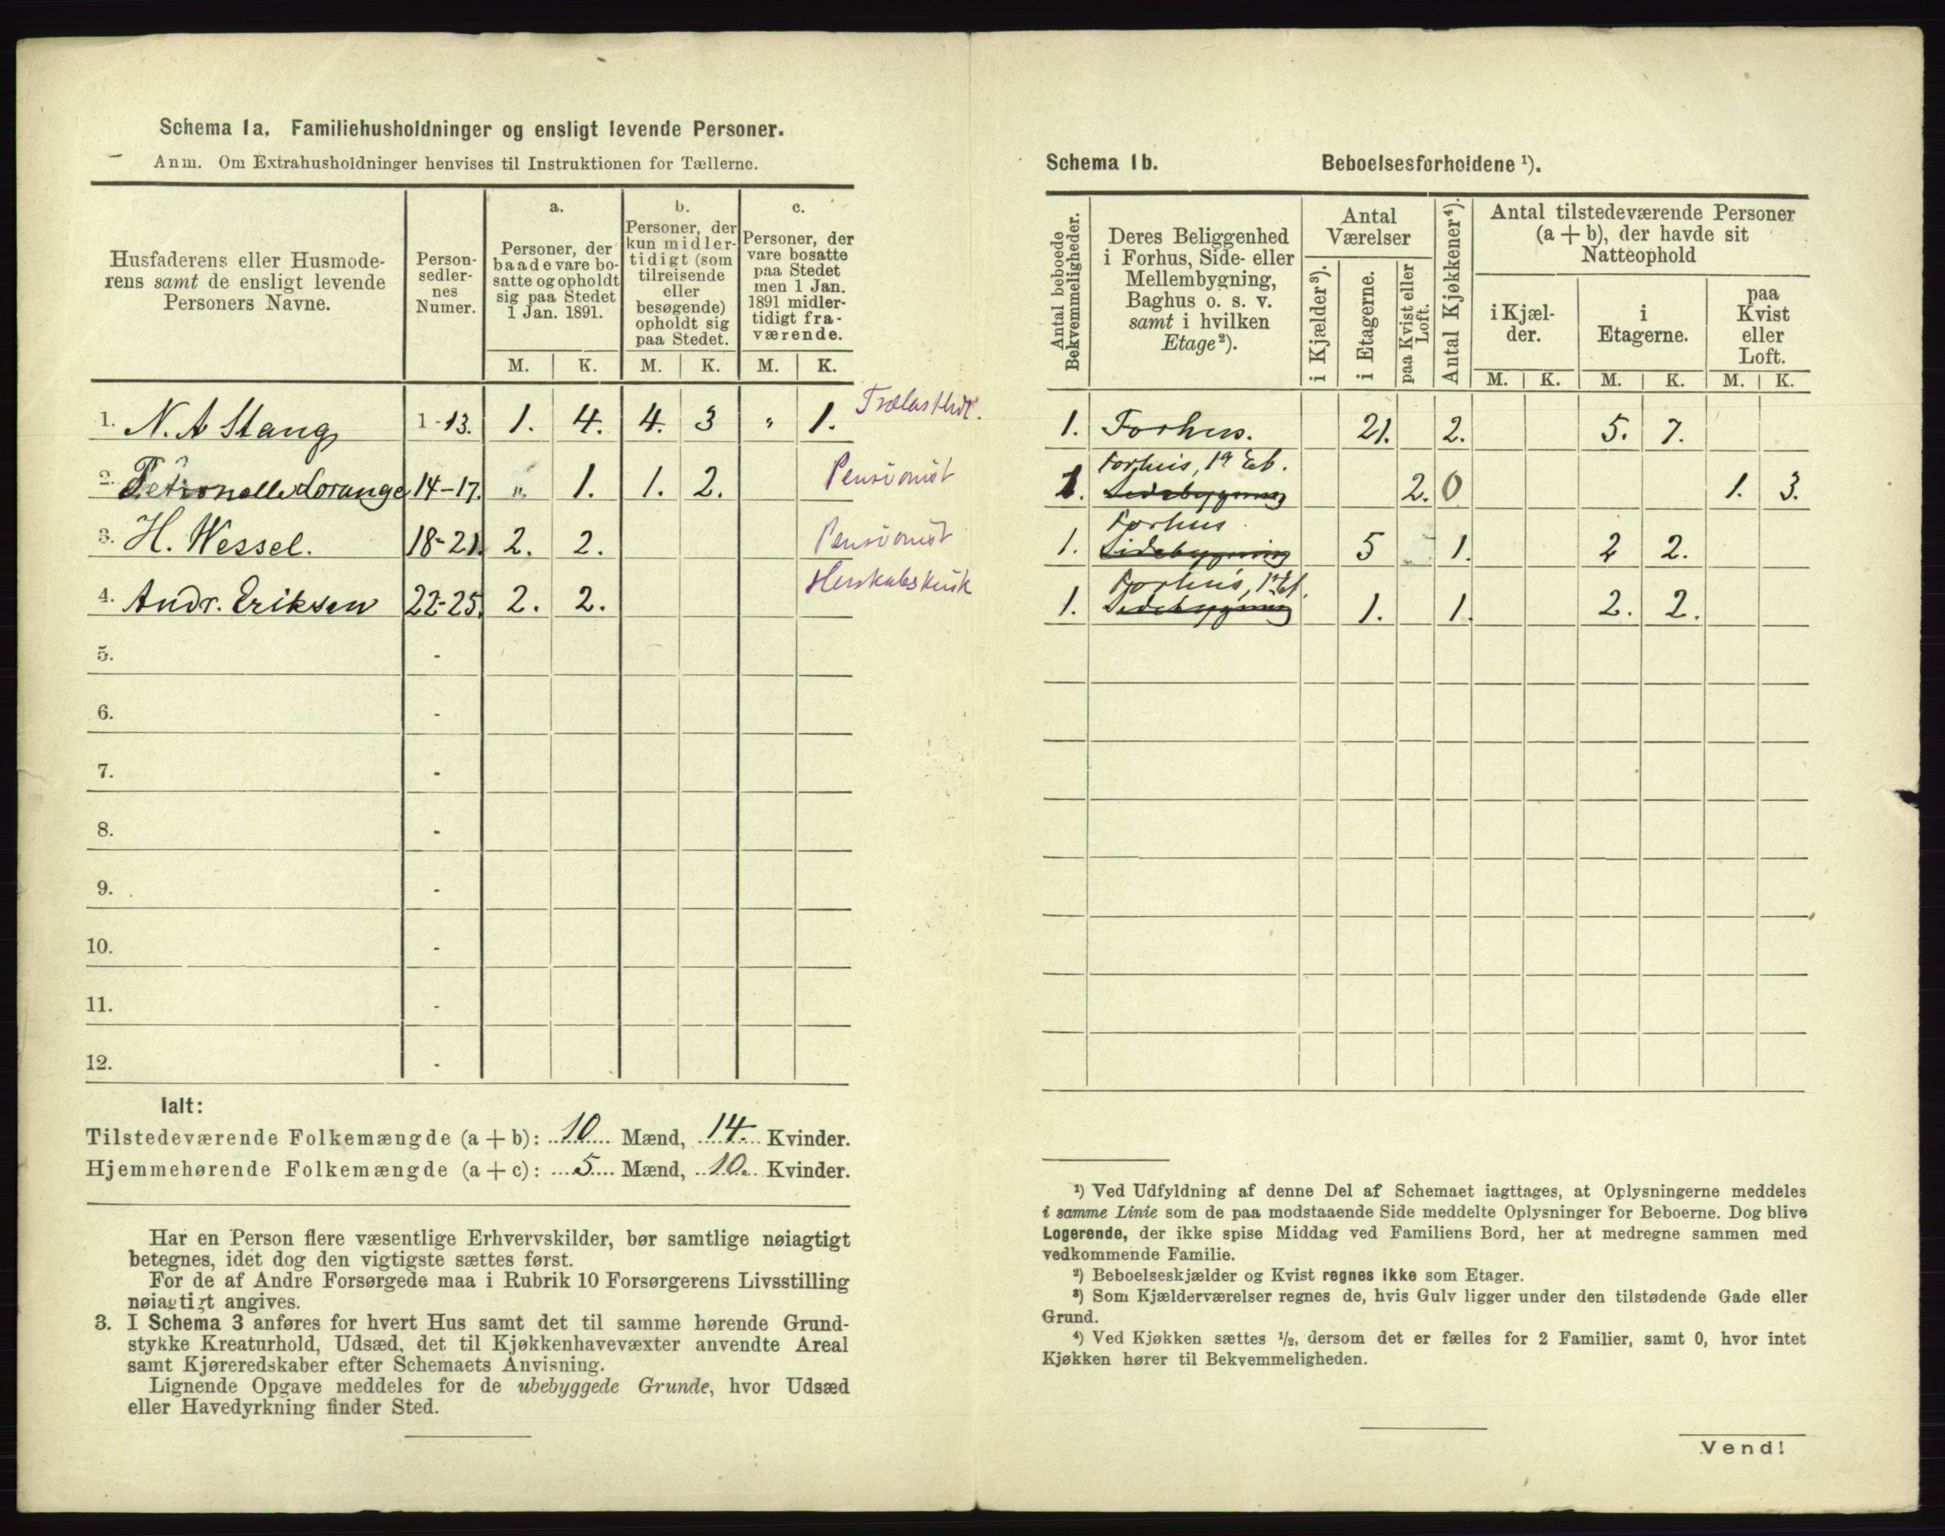 Schema 1a. Familiehusholdninger og ensligt levende Personer.
Anm. Om Extrahusholdninger henvises til Instruktionen for Tællerne.
Husfaderens eller Husmoderens samt de ensligt levende Personers Navne.
Personsedlernes Numer.
a. Personer, der baade vare bosatte og opholdt sig paa Stedet 1 Jan. 1891.
b. Personer, der kun midlertidigt (som tilreisende eller besøgende) opholdt sig paa Stedet.
c. Personer, der vare bosatte paa Stedet men 1 Jan. 1891 midlertidigt fraværende.
M. K. M. K. M. K.
1. N. A Stang 1-13. 1. 4. 4. 3 " 1. Trælasthdl.
2. Petronelle Lorange 14-17. " 1. 1. 2. Pensionist
3. H. Wessel. 18-21 2. 2. Pensionist
4. Andr. Eriksen 22-25. 2. 2. Herskabskusk
5. -
6. -
7. -
8. -
9. -
10. -
11. -
12. -
Ialt:
Tilstedeværende Folkemængde (a + b): 10 Mænd, 14. Kvinder.
Hjemmehørende Folkemængde (a + c): 5 Mænd, 10. Kvinder.
Har en Person flere væsentlige Erhvervskilder, bør samtlige nøiagtigt
betegnes, idet dog den vigtigste sættes først.
For de af Andre Forsørgede maa i Rubrik 10 Forsørgerens Livsstilling
nøiagtigt angives.
3. I Schema 3 anføres for hvert Hus samt det til samme hørende Grund-
stykke Kreaturhold, Udsæd, det til Kjøkkenhavevæxter anvendte Areal
samt Kjøreredskaber efter Schemaets Anvisning.
Lignende Opgave meddeles for de ubebyggede Grunde, hvor Udsæd
eller Havedyrkning finder Sted.
Schema 1b. Beboelsesforholdene ¹).
Antal beboede Bekvemmeligheder.
Deres Beliggenhed i Forhus, Side- eller Mellembygning, Baghus o. s. v. samt i hvilken Etage²).
Antal Værelser
i Kjælder³).
i Etagerne.
paa Kvist eller Loft.
Antal Kjøkkener⁴).
Antal tilstedeværende Personer (a + b), der havde sit Natteophold
i Kjælder. i Etagerne. paa Kvist eller Loft.
M. K. M. K. M. K.
1. Forhus. 21. 2. 5. 7.
Forhus, 1ª Et.
1. Sidebygning 2. 0 1. 3.
Forhus
1. Sidebygning 5 1. 2 2.
Forhus, 1ª Et.
1. Sidebygning 1. 1. 2. 2.
¹) Ved Udfyldning af denne Del af Schemaet iagttages, at Oplysningerne meddeles
i samme Linie som de paa modstaaende Side meddelte Oplysninger for Beboerne. Dog blive
Logerende, der ikke spise Middag ved Familiens Bord, her at medregne sammen med
vedkommende Familie.
²) Beboelseskjælder og Kvist regnes ikke som Etager.
³) Som Kjælderværelser regnes de, hvis Gulv ligger under den tilstødende Gade eller
Grund.
⁴) Ved Kjøkken sættes ½, dersom det er fælles for 2 Familier, samt 0, hvor intet
Kjøkken hører til Bekvemmeligheden.
Vend!